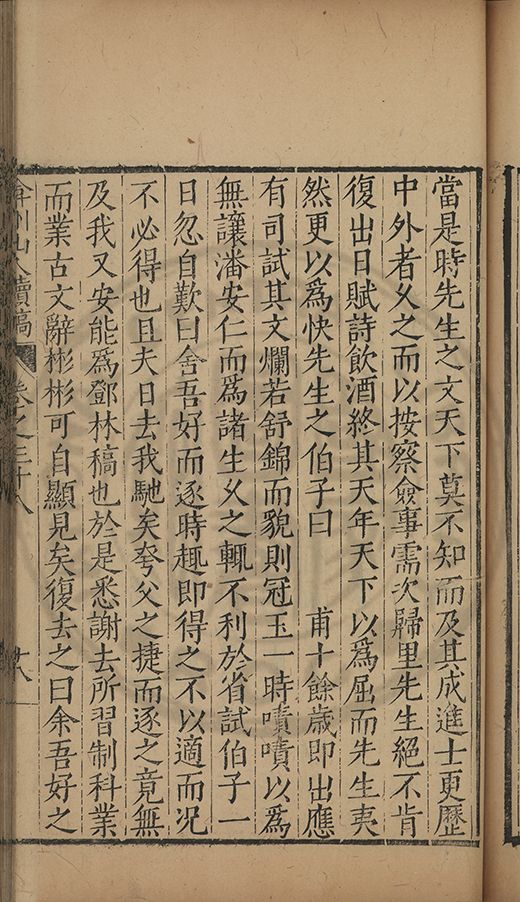 當是時先生之文天下莫不知而及其成進士更歷
中外者久之而以按察僉事需次歸里先生絕不肯
復出日賦詩飲酒終其天年天下以爲屈而先生夷
然更以爲快先生之伯子曰　甫十餘歲即出應
有司試其文爛若舒錦而貌則冠玉一時嘖嘖以爲
無讓潘安仁而爲諸生久之輒不利於省試伯子一
日忽自歎曰舍吾好而逐時趣即得之不以適而况
不必得也且夫日去我馳矣夸父之捷而逐之竟無
及我又安能爲鄧林稿也於是悉謝去所習制科業
而業古文辭彬彬可自顯見矣復去之曰余吾好之
弇州山人續稿
卷之三十八
十八